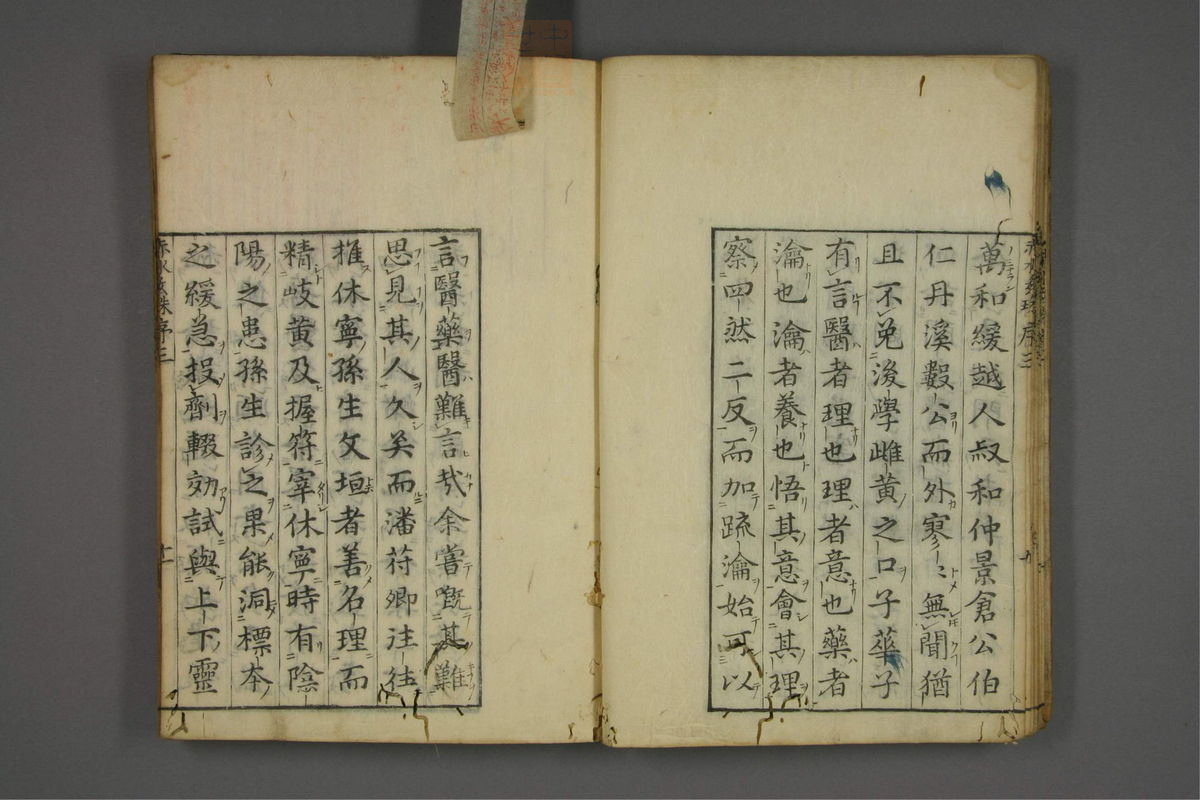 萬和緩越人叔和仲景倉公伯
仁丹溪數公而外寥〻無聞猶
且不免後學雌黃之口子華子
有言醫者理也理者意也藥者
瀹也瀹者養也悟其意會其理
察四然二反而加疏瀹始可以
言醫藥醫難言哉余嘗慨其難
思見其人久矣而潘苻卿注徃
推休寧孫生文垣者善名理而
精岐黃及握符宰休寧時有陰
陽之患孫生診之果能洞標本
之緩急投劑輙効試與上下靈
赤水玄珠序三
十一